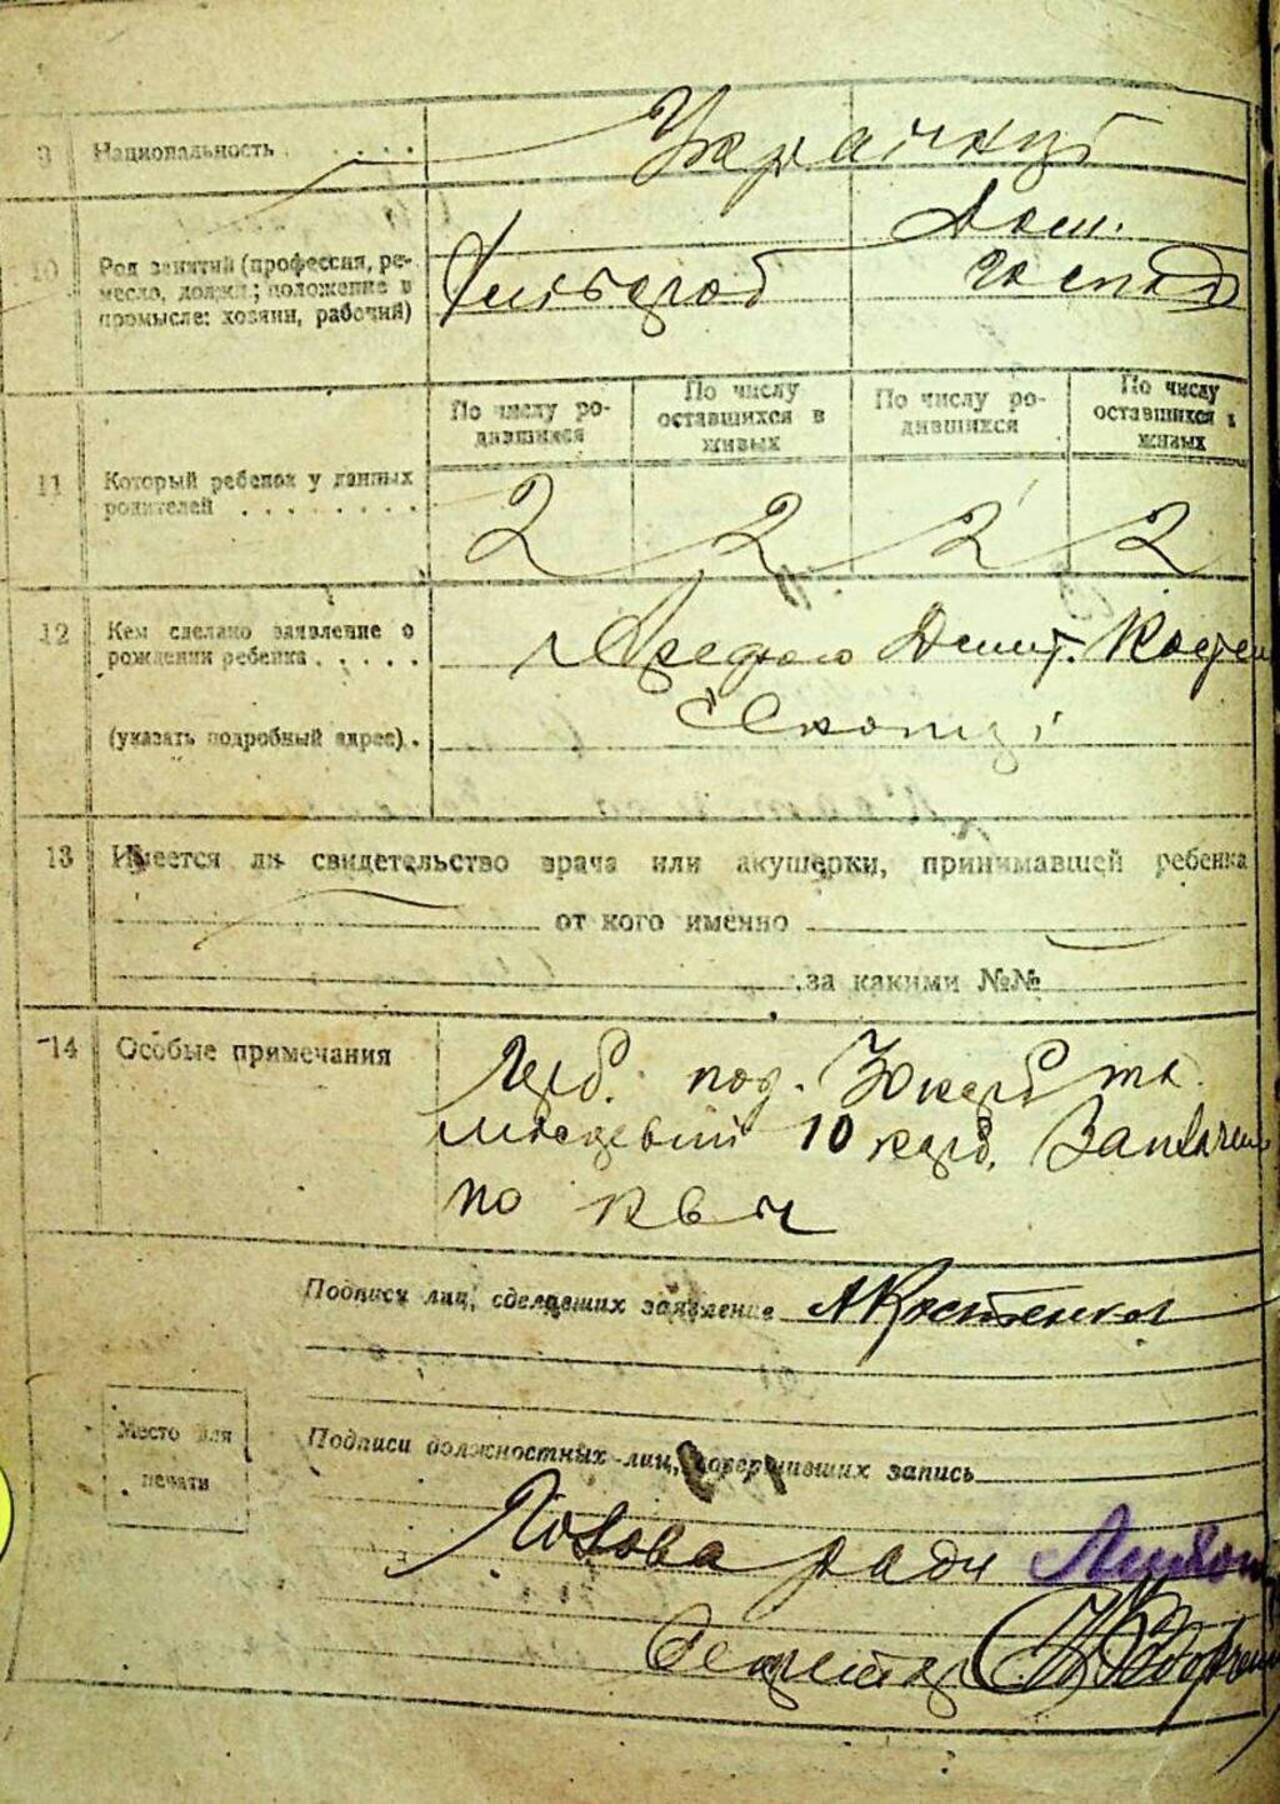 9 Национальность . . . . . Українці
10 Род занятий (профессия, ре-
месло, должн.; положение в
промысле: хозяин, рабочий)
Хлібороб
Дом.
господ
11 Который ребенок у данных
родителей . . . . . . . .
По числу ро-
дившихся
По числу
оставшихся в
живых
По числу ро-
дившихся
По числу
оставшихся в
живых
2 2 2 2
12 Кем сделано заявление о
рождении ребенка . . . . .
(указать подробный адрес) .
Дмит. Костен
13 Имеется ли свидетельство врача или акушерки, принимавшей ребенка
от кого именно
за какими №№
14 Особые примечания
Герб. под.
місцевий 10 карб.
по кв №
Подписи лиц, сделавших заявление АКостенко
Место для
печати
Подписи должностных лиц, совершивших запись
Голова ради
Секретар